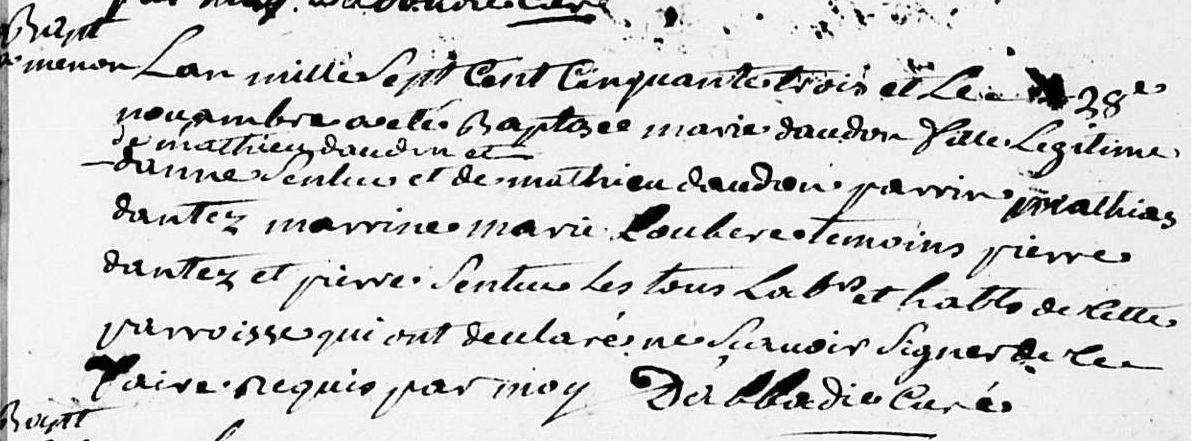 par moy Dabbadie Curé
Bapt
menon Lan mille Sept Cent Cinquante trois et Le 28e
nouambre a eté Baptisee marie daudon fille Legitime
de mathieu daudon et
danne Sentuc et de mathieu daudon parrin mathias
dantez marrine marie Loubere temoins pierre
dantez et pierre Sentuc Les tous Labrs et habts de Cette
parroisse qui ont declaré ne Scauoir Signer de Ce
faire Requis par moy Dabbadie Curé
Bapt